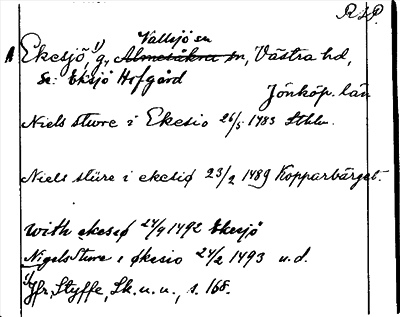 RAP.
Vallsjö sn
Ekesjö,¹⁾ g, Almesåkra sn, Västra hd,
Se: Eksjö Hofgård
Jönköp. län
Niels sture i Ekesio 26/5 1483 Sthlm.
Niels stüre i ekesiø 23/2 1489 Kopparbärget.
With ekesiø 24/9 1492 Ekesjö
Nigels sture i økesio 24/2 1493 u.d.
¹⁾Jfr, Styffe, Sk. u. u., s. 168.